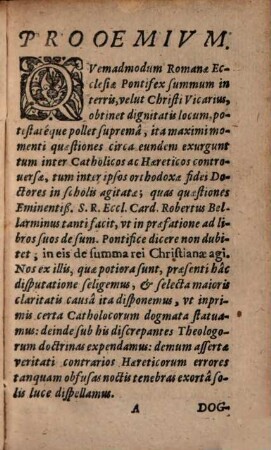 PROOEMIVM.
QVemadmodum Romanæ Ec-
clesiæ Pontifex summum in
terris, velut Christi Vicarius,
obtinet dignitatis locum, po-
testatéque pollet supremâ, ita maximi mo-
menti quæstiones circa eundem exurgunt
tum inter Catholicos ac Hæreticos contro-
versæ, tum inter ipsos orthodoxæ fidei Do-
ctores in scholis agitatæ; quas quæstiones
Eminentiß. S. R. Eccl. Card. Robertus Bel-
larminus tanti facit, vt in præfatione ad li-
bros suos de sum. Pontifice dicere non dubi-
tet, in eis de summa rei Christianæ agi.
Nos ex illis, quæ potiora sunt, præsenti hâc
disputatione seligemus, & selecta maioris
claritatis causâ ita disponemus, vt inpri-
mis certa Catholocorum dogmata statua-
mus: deinde sub his discrepantes Theologo-
rum doctrinas expendamus: demum assertæ
veritati contrarios Hæreticorum errores
tanquam obfusas noctis tenebras exortâ so-
lis luce dispellamus.
A DOG-